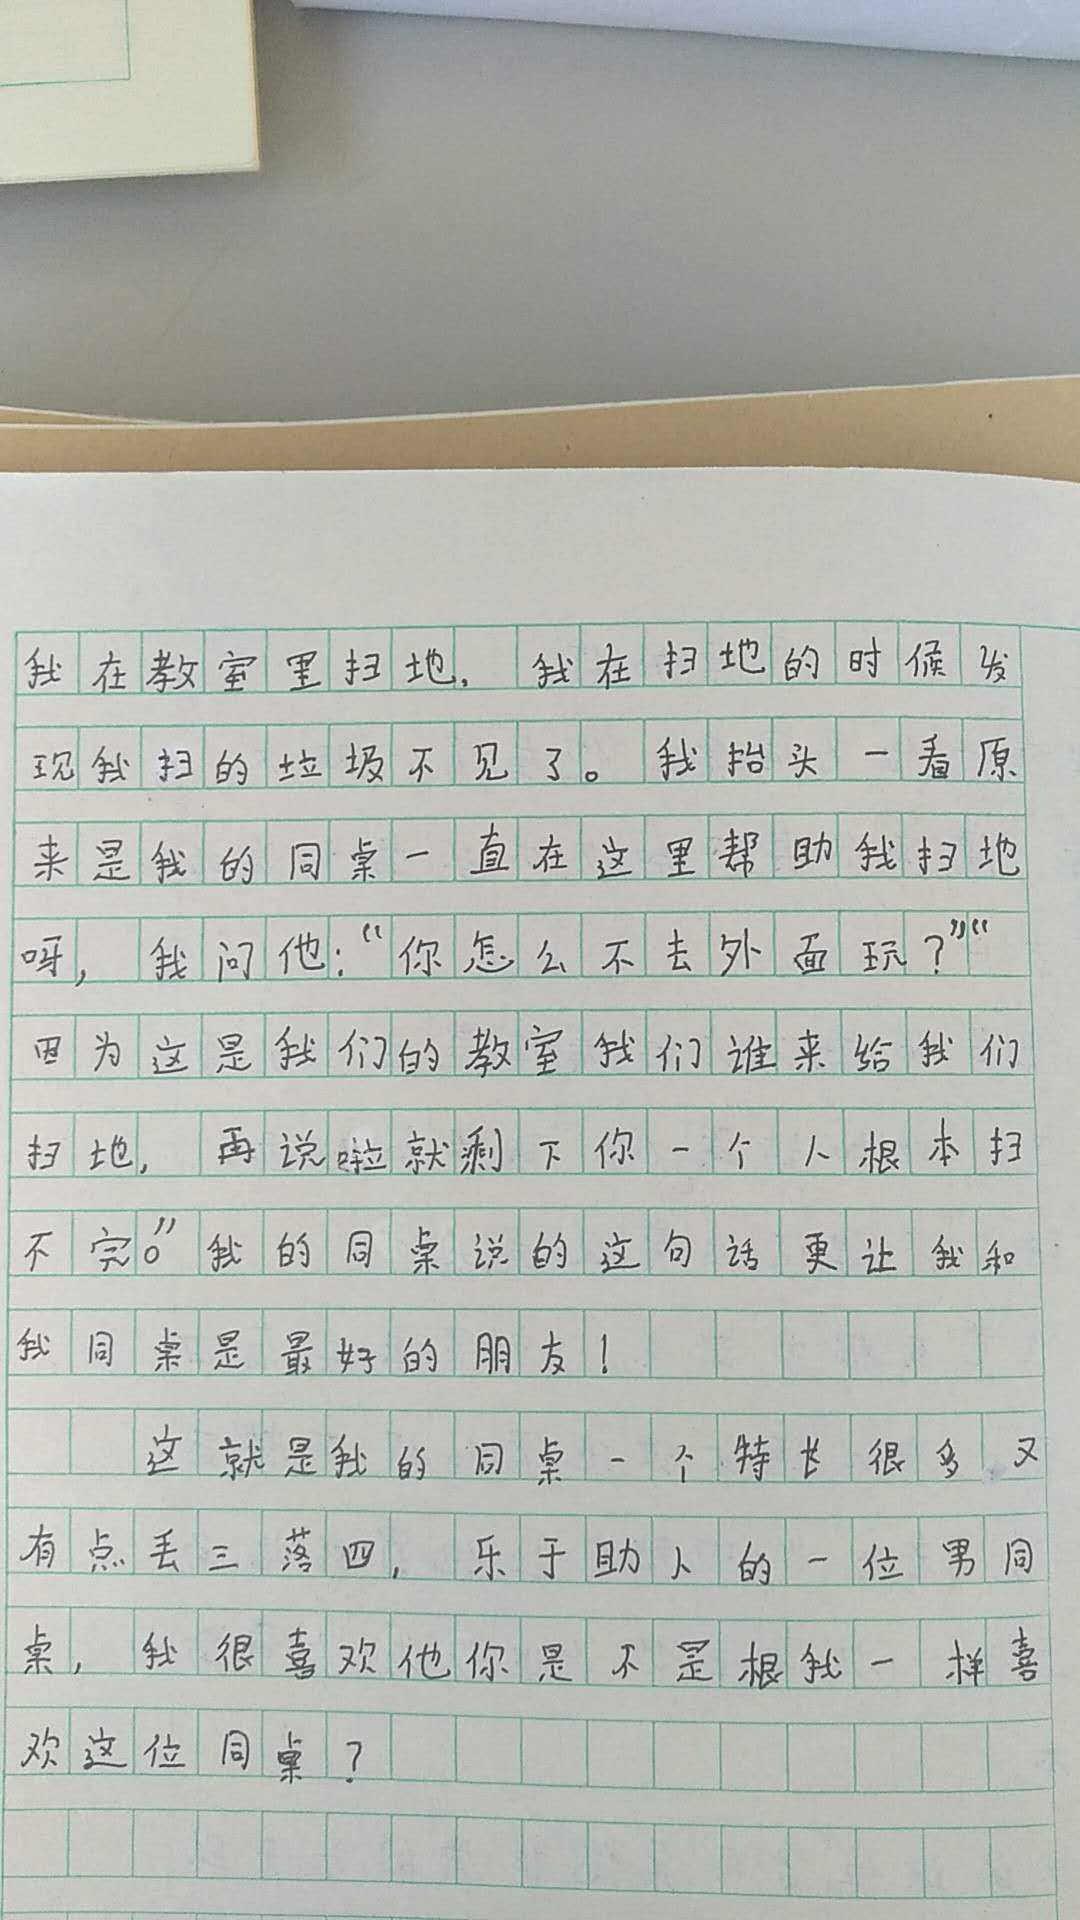 我在教室里扫地，我在扫地的时候发
现我扫的垃圾不见了。我抬头一看原
来是我的同桌一直在这里帮助我扫地
呀，我问他：“你怎么不去外面玩？”“
因为这是我们的教室我们谁来给我们
扫地，再说啦就剩下你一个人根本扫
不完。”我的同桌说的这句话更让我和
我同桌是最好的朋友！
这就是我的同桌一个特长很多又
有点丢三落四，乐于助人的一位男同
桌，我很喜欢他你是不是根我一样喜
欢这位同桌？